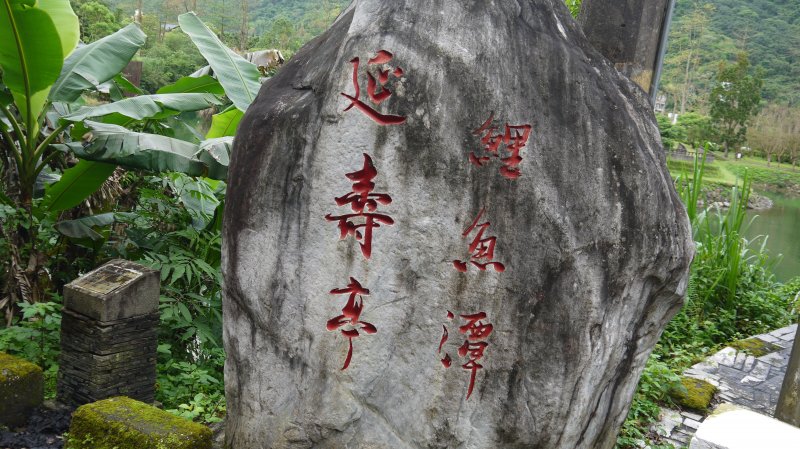 鯉魚潭
延壽亭